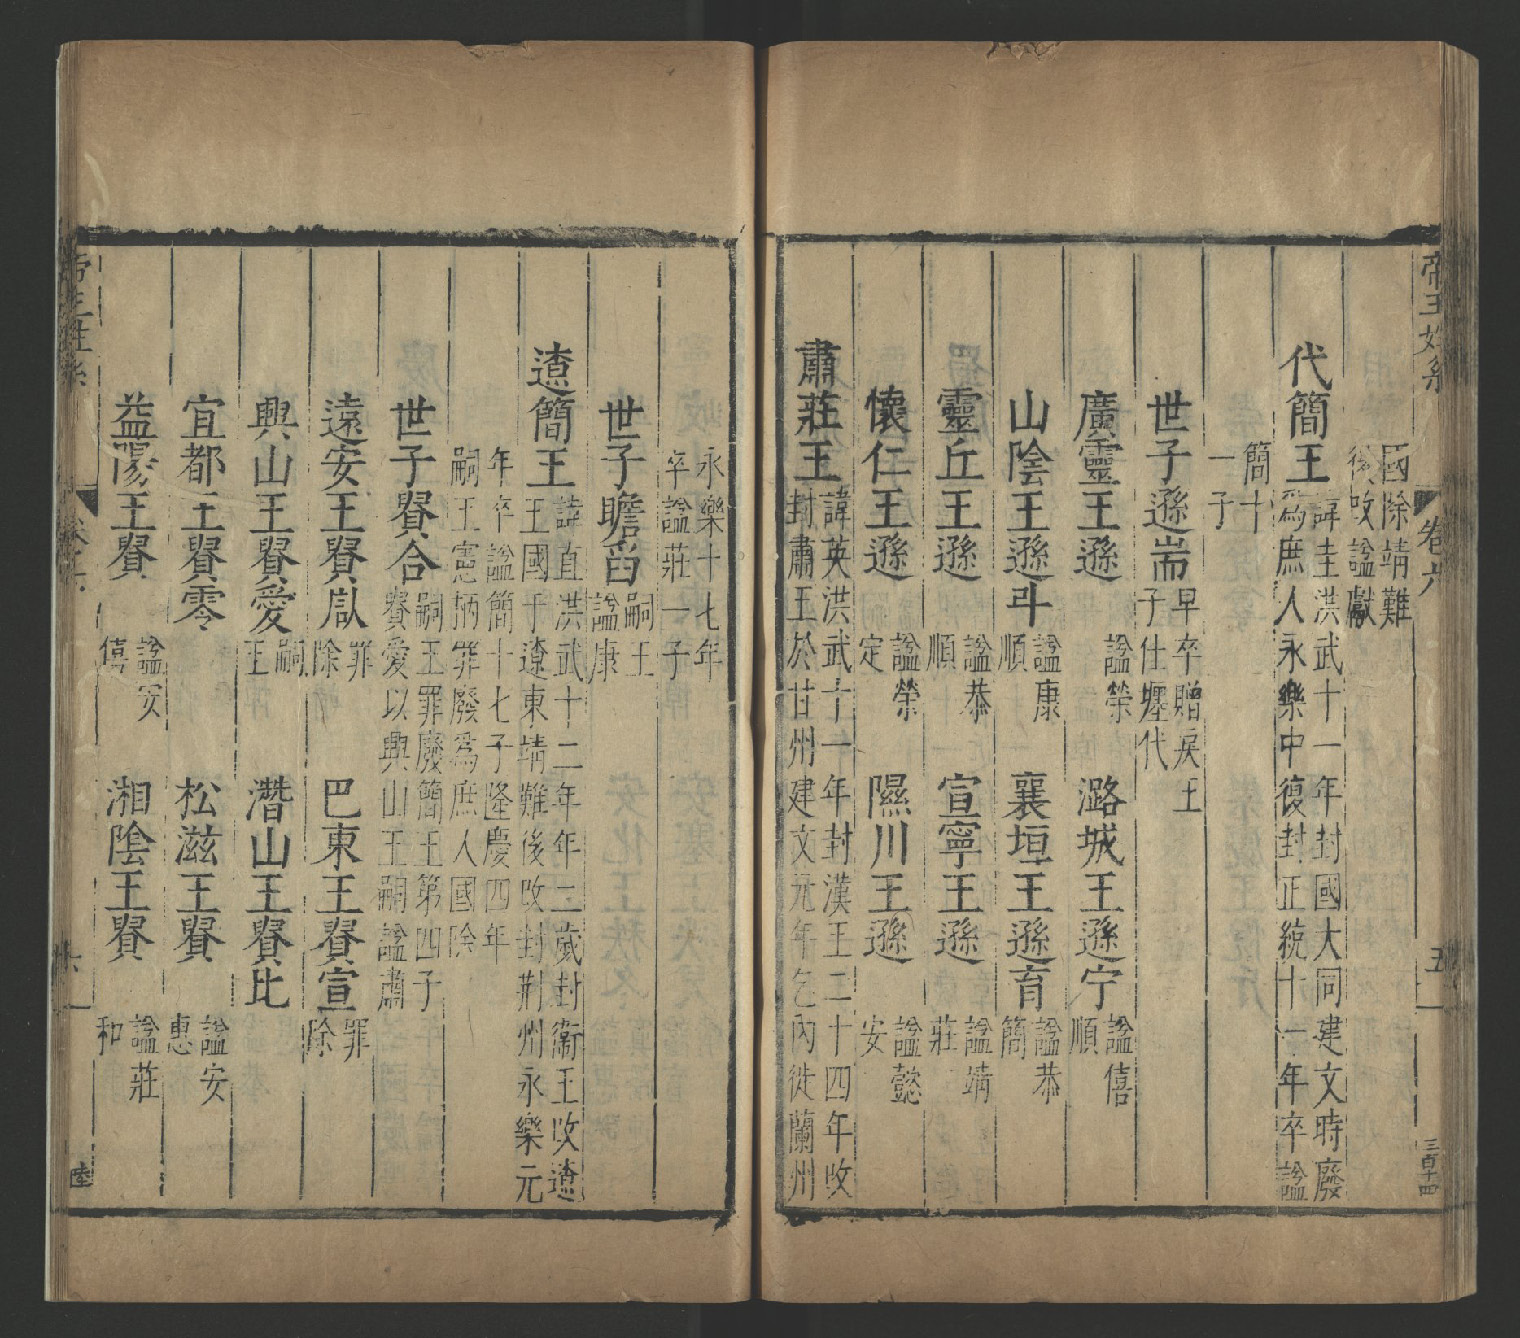 帝王姓系 卷六 五 三百十四
國除靖難
後改諡獻
代簡王
諱桂洪武十一年封國大同建文時廢
爲庶人永樂中復封正統十一年卒諡
簡十
一子
世子遜耑
早卒贈戾王
子仕壥代
廣靈王遜
諡榮
潞城王遜宁
諡僖
順
山陰王遜㪷
諡康
順
襄垣王遜育
諡恭
簡
靈丘王遜
諡恭
順
宣寧王遜
諡靖
莊
懷仁王遜
諡榮
定
隰川王遜
諡懿
安
肅莊王
諱英洪武十一年封漢王二十四年改
封肅王於甘州建文元年乞內徙蘭州
永樂十七年
卒諡莊一子
世子瞻
嗣王
諡康
遼簡王
諱直洪武十二年年二歲封衛王改遼
王國于遼東靖難後改封荆州永樂元
年卒諡簡十七子隆慶四年
嗣王憲㸅罪廢爲庶人國除
世子貴合
嗣王罪廢簡王第四子
貴愛以興山王嗣諡肅
遠安王貴
罪
除
巴東王貴宣
罪
除
興山王貴愛
嗣
王
潛山王貴比
宜都王貴零
松滋王貴
諡安
惠
益陽王貴
諡安
僖
湘陰王貴
諡莊
和
帝王姓系 卷六 六 陸